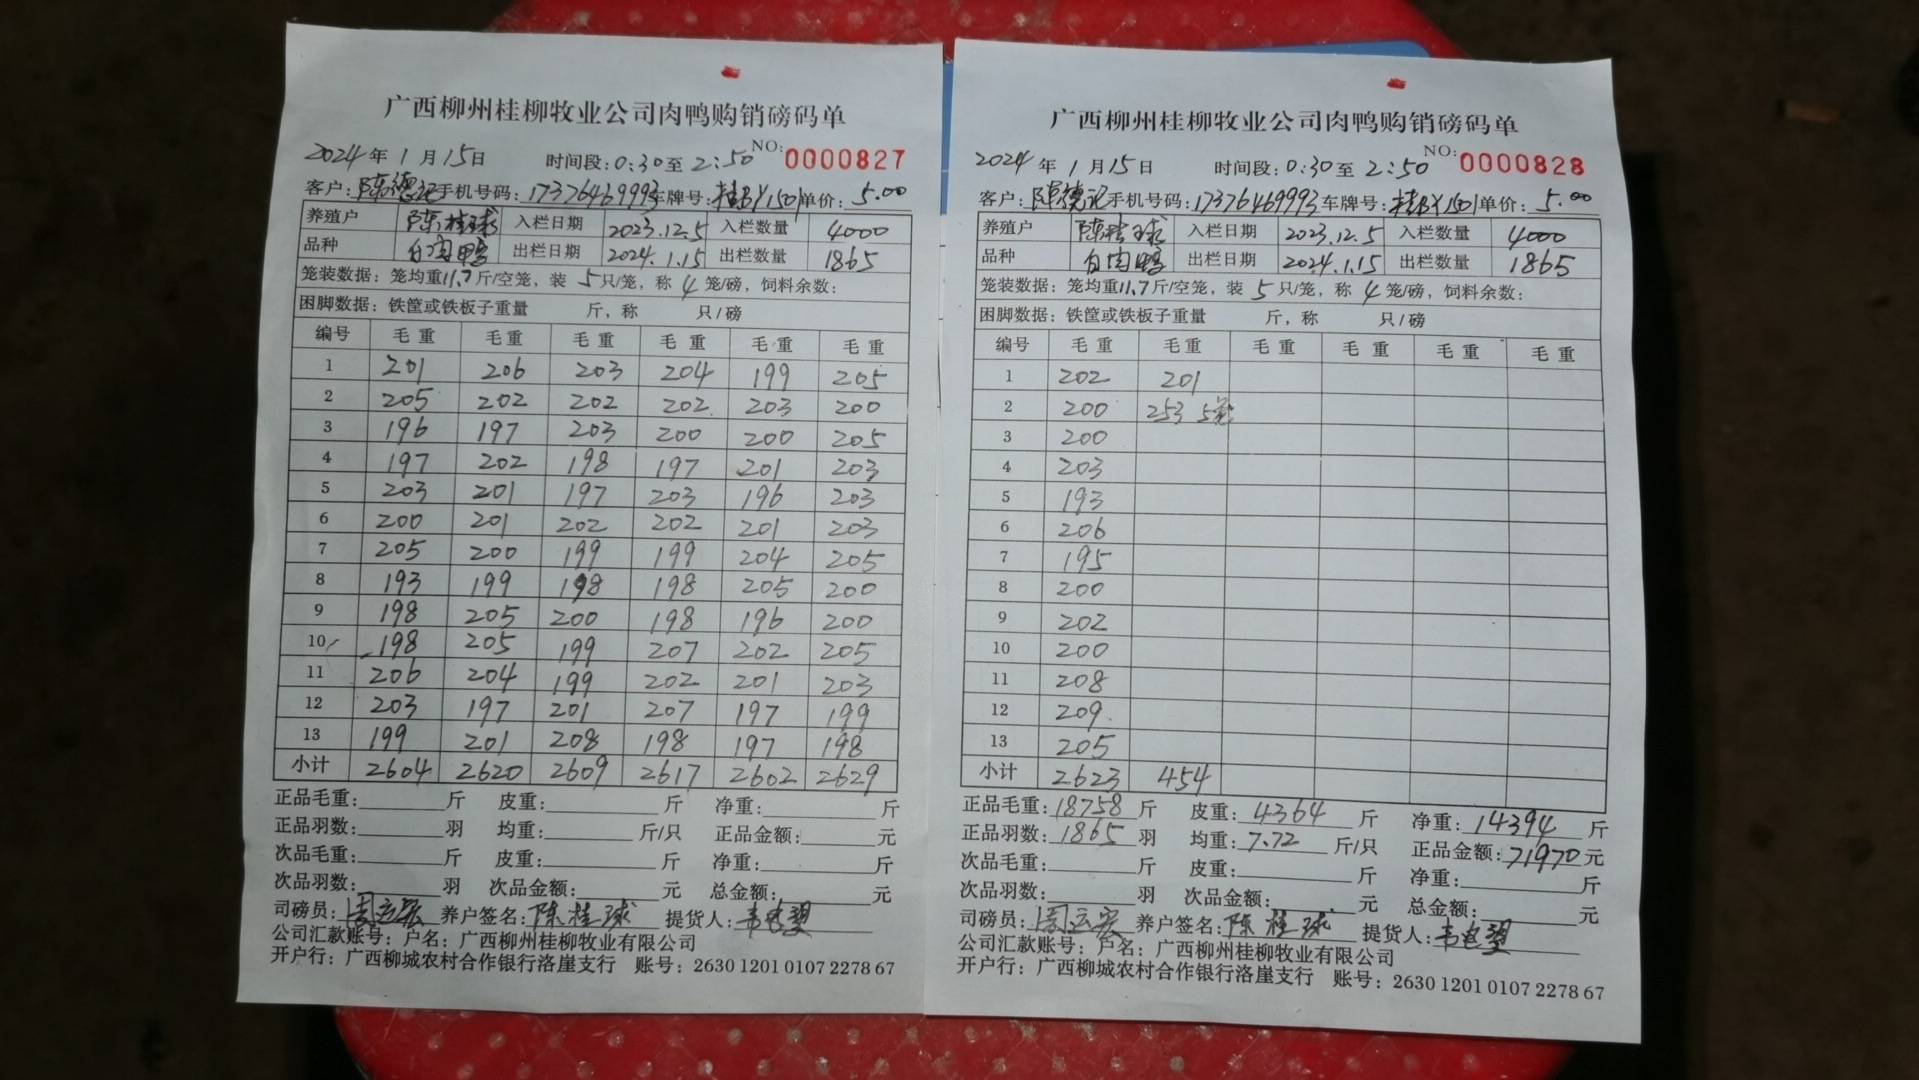 广西柳州桂柳牧业公司肉鸭购销磅码单
2024年 1月 15日 时间段: 0:30 至 2:50 NO: 0000827
客户: 陈德记 手机号码: 17376469993 车牌号: 桂BY1501 单价: 5.00
养殖户 陈桂球 入栏日期 2023.12.5 入栏数量 4000
品种 白肉鸭 出栏日期 2024.1.15 出栏数量 1865
笼装数据: 笼均重11.7斤/空笼, 装 5只/笼, 称 4 笼/磅, 饲料余数:
困脚数据: 铁筐或铁板子重量 斤, 称 只/磅
编号 毛重 毛重 毛重 毛重 毛重 毛重
1 201 206 203 204 199 205
2 205 202 202 202 203 200
3 196 197 203 200 200 205
4 197 202 198 197 201 203
5 203 201 197 203 196 203
6 200 201 202 202 201 203
7 205 200 199 199 204 205
8 193 199 198 198 205 200
9 198 205 200 198 196 200
10 198 205 199 207 202 205
11 206 204 199 202 201 203
12 203 197 201 207 197 199
13 199 201 208 198 197 198
小计 2604 2620 2609 2617 2602 2629
正品毛重: 斤 皮重: 斤 净重: 斤
正品羽数: 羽 均重: 斤/只 正品金额: 元
次品毛重: 斤 皮重: 斤 净重: 斤
次品羽数: 羽 次品金额: 元 总金额: 元
司磅员: 养户签名: 陈桂球 提货人:
公司汇款账号: 户名: 广西柳州桂柳牧业有限公司
开户行: 广西柳城农村合作银行洛崖支行 账号: 2630 1201 0107 2278 67
广西柳州桂柳牧业公司肉鸭购销磅码单
2024年 1月 15日 时间段: 0:30 至 2:50 NO: 0000828
客户: 陈德记 手机号码: 17376469993 车牌号: 桂BY1501 单价: 5.00
养殖户 陈桂球 入栏日期 2023.12.5 入栏数量 4000
品种 白肉鸭 出栏日期 2024.1.15 出栏数量 1865
笼装数据: 笼均重11.7斤/空笼, 装 5 只/笼, 称 4 笼/磅, 饲料余数:
困脚数据: 铁筐或铁板子重量 斤, 称 只/磅
编号 毛重 毛重 毛重 毛重 毛重 毛重
1 202 201
2 200 253 5笼
3 200
4 203
5 193
6 206
7 195
8 200
9 202
10 200
11 208
12 209
13 205
小计 2623 454
正品毛重: 18758 斤 皮重: 4364 斤 净重: 14394 斤
正品羽数: 1865 羽 均重: 7.72 斤/只 正品金额: 71970 元
次品毛重: 斤 皮重: 斤 净重: 斤
次品羽数: 羽 次品金额: 元 总金额: 元
司磅员: 养户签名: 陈桂球 提货人:
公司汇款账号: 户名: 广西柳州桂柳牧业有限公司
开户行: 广西柳城农村合作银行洛崖支行 账号: 2630 1201 0107 2278 67